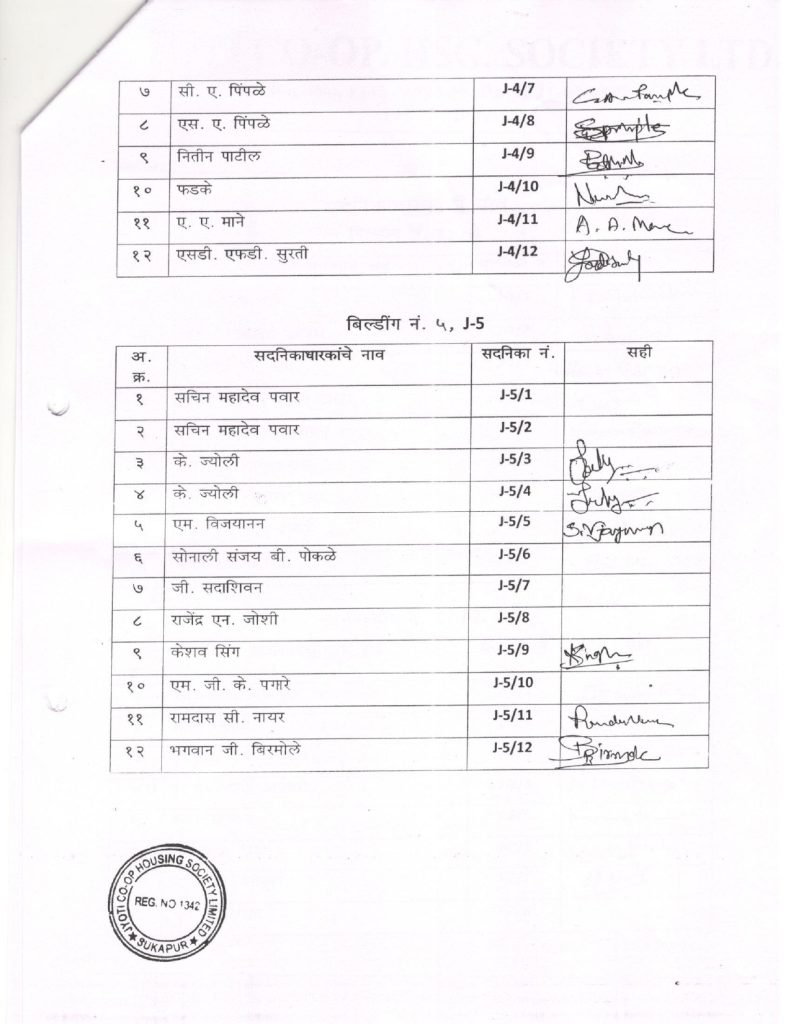 ७ सी. ए. पिंपळे J-4/7
८ एस. ए. पिंपळे J-4/8
९ नितीन पाटील J-4/9
१० फडके J-4/10
११ ए. ए. माने J-4/11 A. A. Mane
१२ एसडी. एफडी. सुरती J-4/12
बिल्डींग नं. ५, J-5
अ. क्र. सदनिकाधारकांचे नाव सदनिका नं. सही
१ सचिन महादेव पवार J-5/1
२ सचिन महादेव पवार J-5/2
३ के. ज्योली J-5/3
४ के. ज्योली J-5/4
५ एम. विजयानन J-5/5
६ सोनाली संजय बी. पोकळे J-5/6
७ जी. सदाशिवन J-5/7
८ राजेंद्र एन. जोशी J-5/8
९ केशव सिंग J-5/9 KSingh
१० एम. जी. के. पगारे J-5/10
११ रामदास सी. नायर J-5/11
१२ भगवान जी. बिरमोले J-5/12
JYOTI CO-OP HOUSING SOCIETY LIMITED
REG. NO 1342
★ SUKAPUR ★